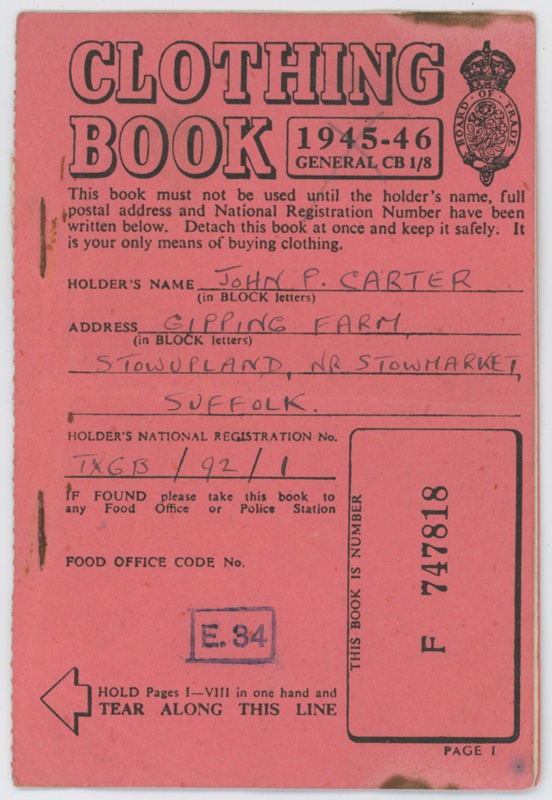 CLOTHING
BOOK
1945-46
GENERAL CB 1/8
BOARD · OF · TRADE
This book must not be used until the holder's name, full
postal address and National Registration Number have been
written below. Detach this book at once and keep it safely. It
is your only means of buying clothing.
HOLDER'S NAME JOHN P. CARTER
(in BLOCK letters)
ADDRESS GIPPING FARM,
(in BLOCK letters)
STOWUPLAND, NR STOWMARKET,
SUFFOLK.
HOLDER'S NATIONAL REGISTRATION No.
TXGB / 92 / 1
IF FOUND please take this book to
any Food Office or Police Station
FOOD OFFICE CODE No.
E. 34
HOLD Pages I—VIII in one hand and
TEAR ALONG THIS LINE
THIS BOOK IS NUMBER
F 747818
PAGE I